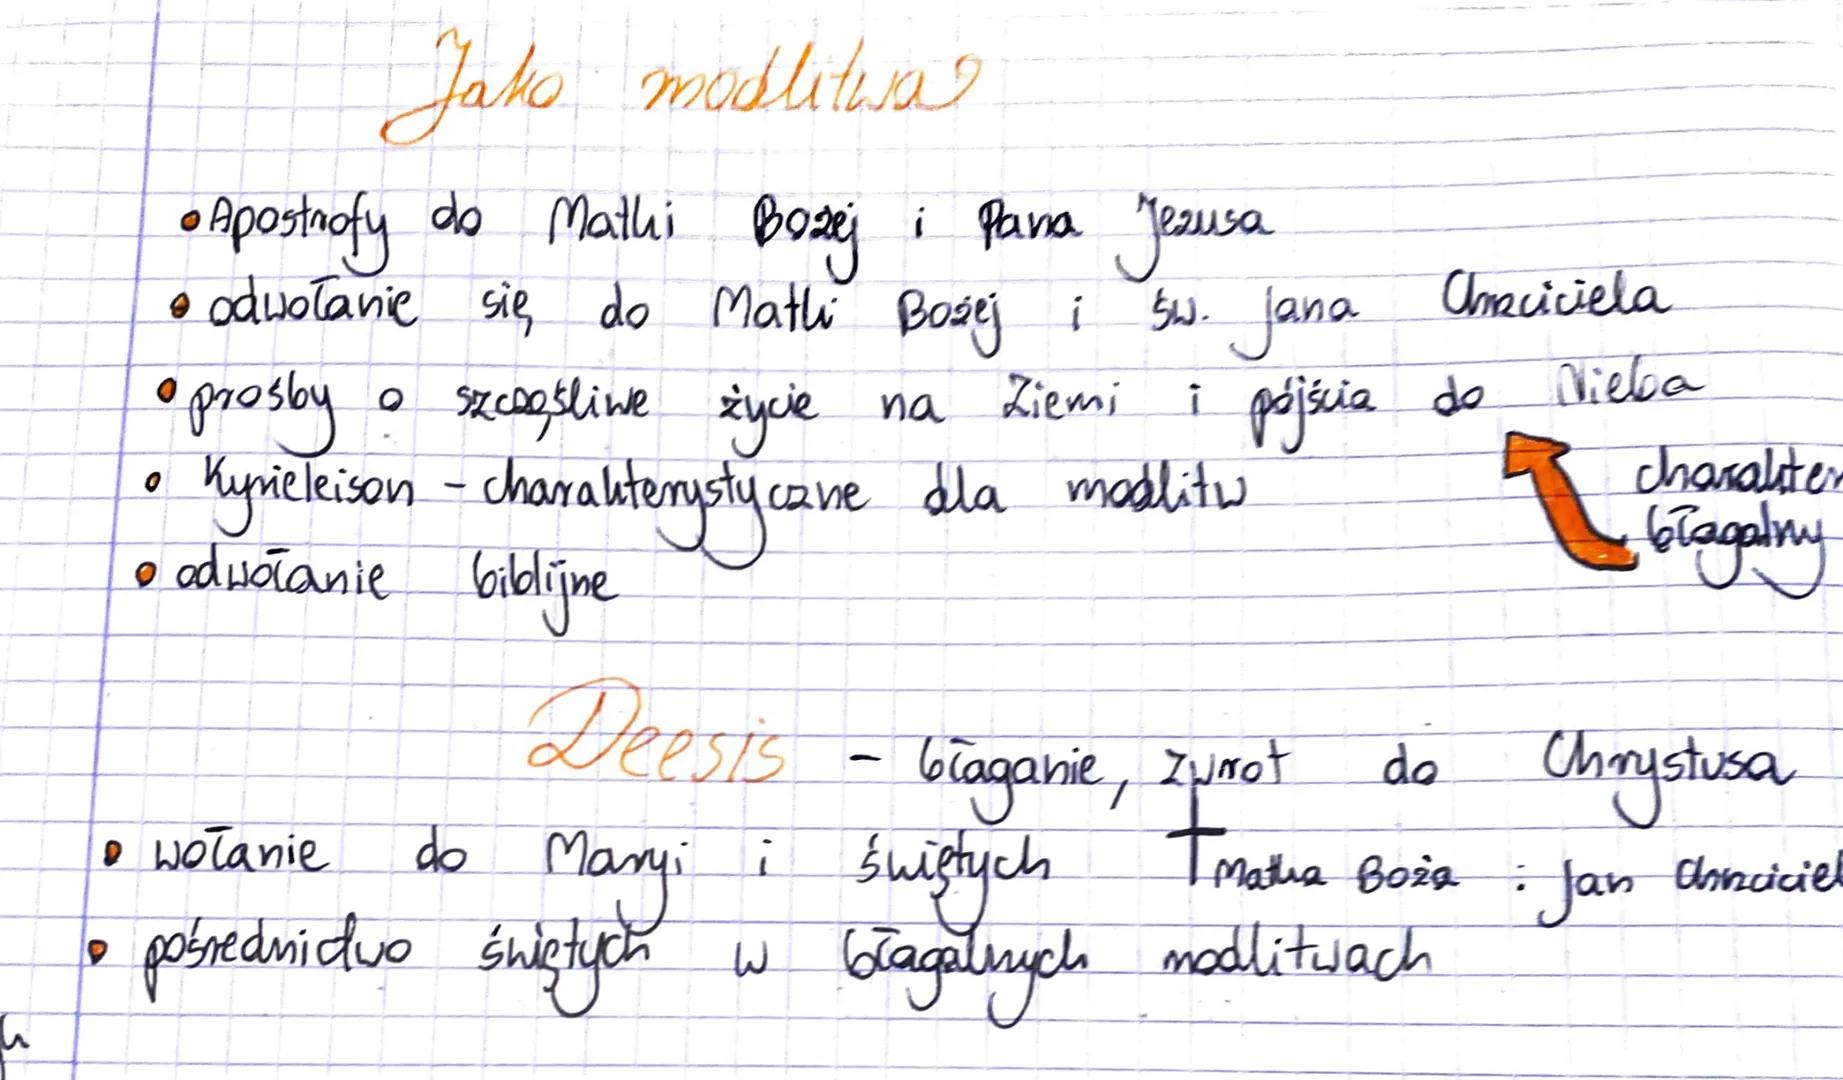 Jako modlitwa?
• Apostrofy do Matki Bożej i Pana Jezusa
• odwołanie się do Matki Bożej i św. Jana Chrzciciela
• prośby o szczęśliwe życie na Ziemi i pójścia do Nieba
charakter
błagalny
• Kyrieleison - charakterystyczne dla modlitw
• odwołanie biblijne
Deesis - błaganie, zwrot do Chrystusa
• wołanie do Maryi i świętych
Matka Boża i Jan Chrzciciel
• pośrednictwo świętych w błagalnych modlitwach